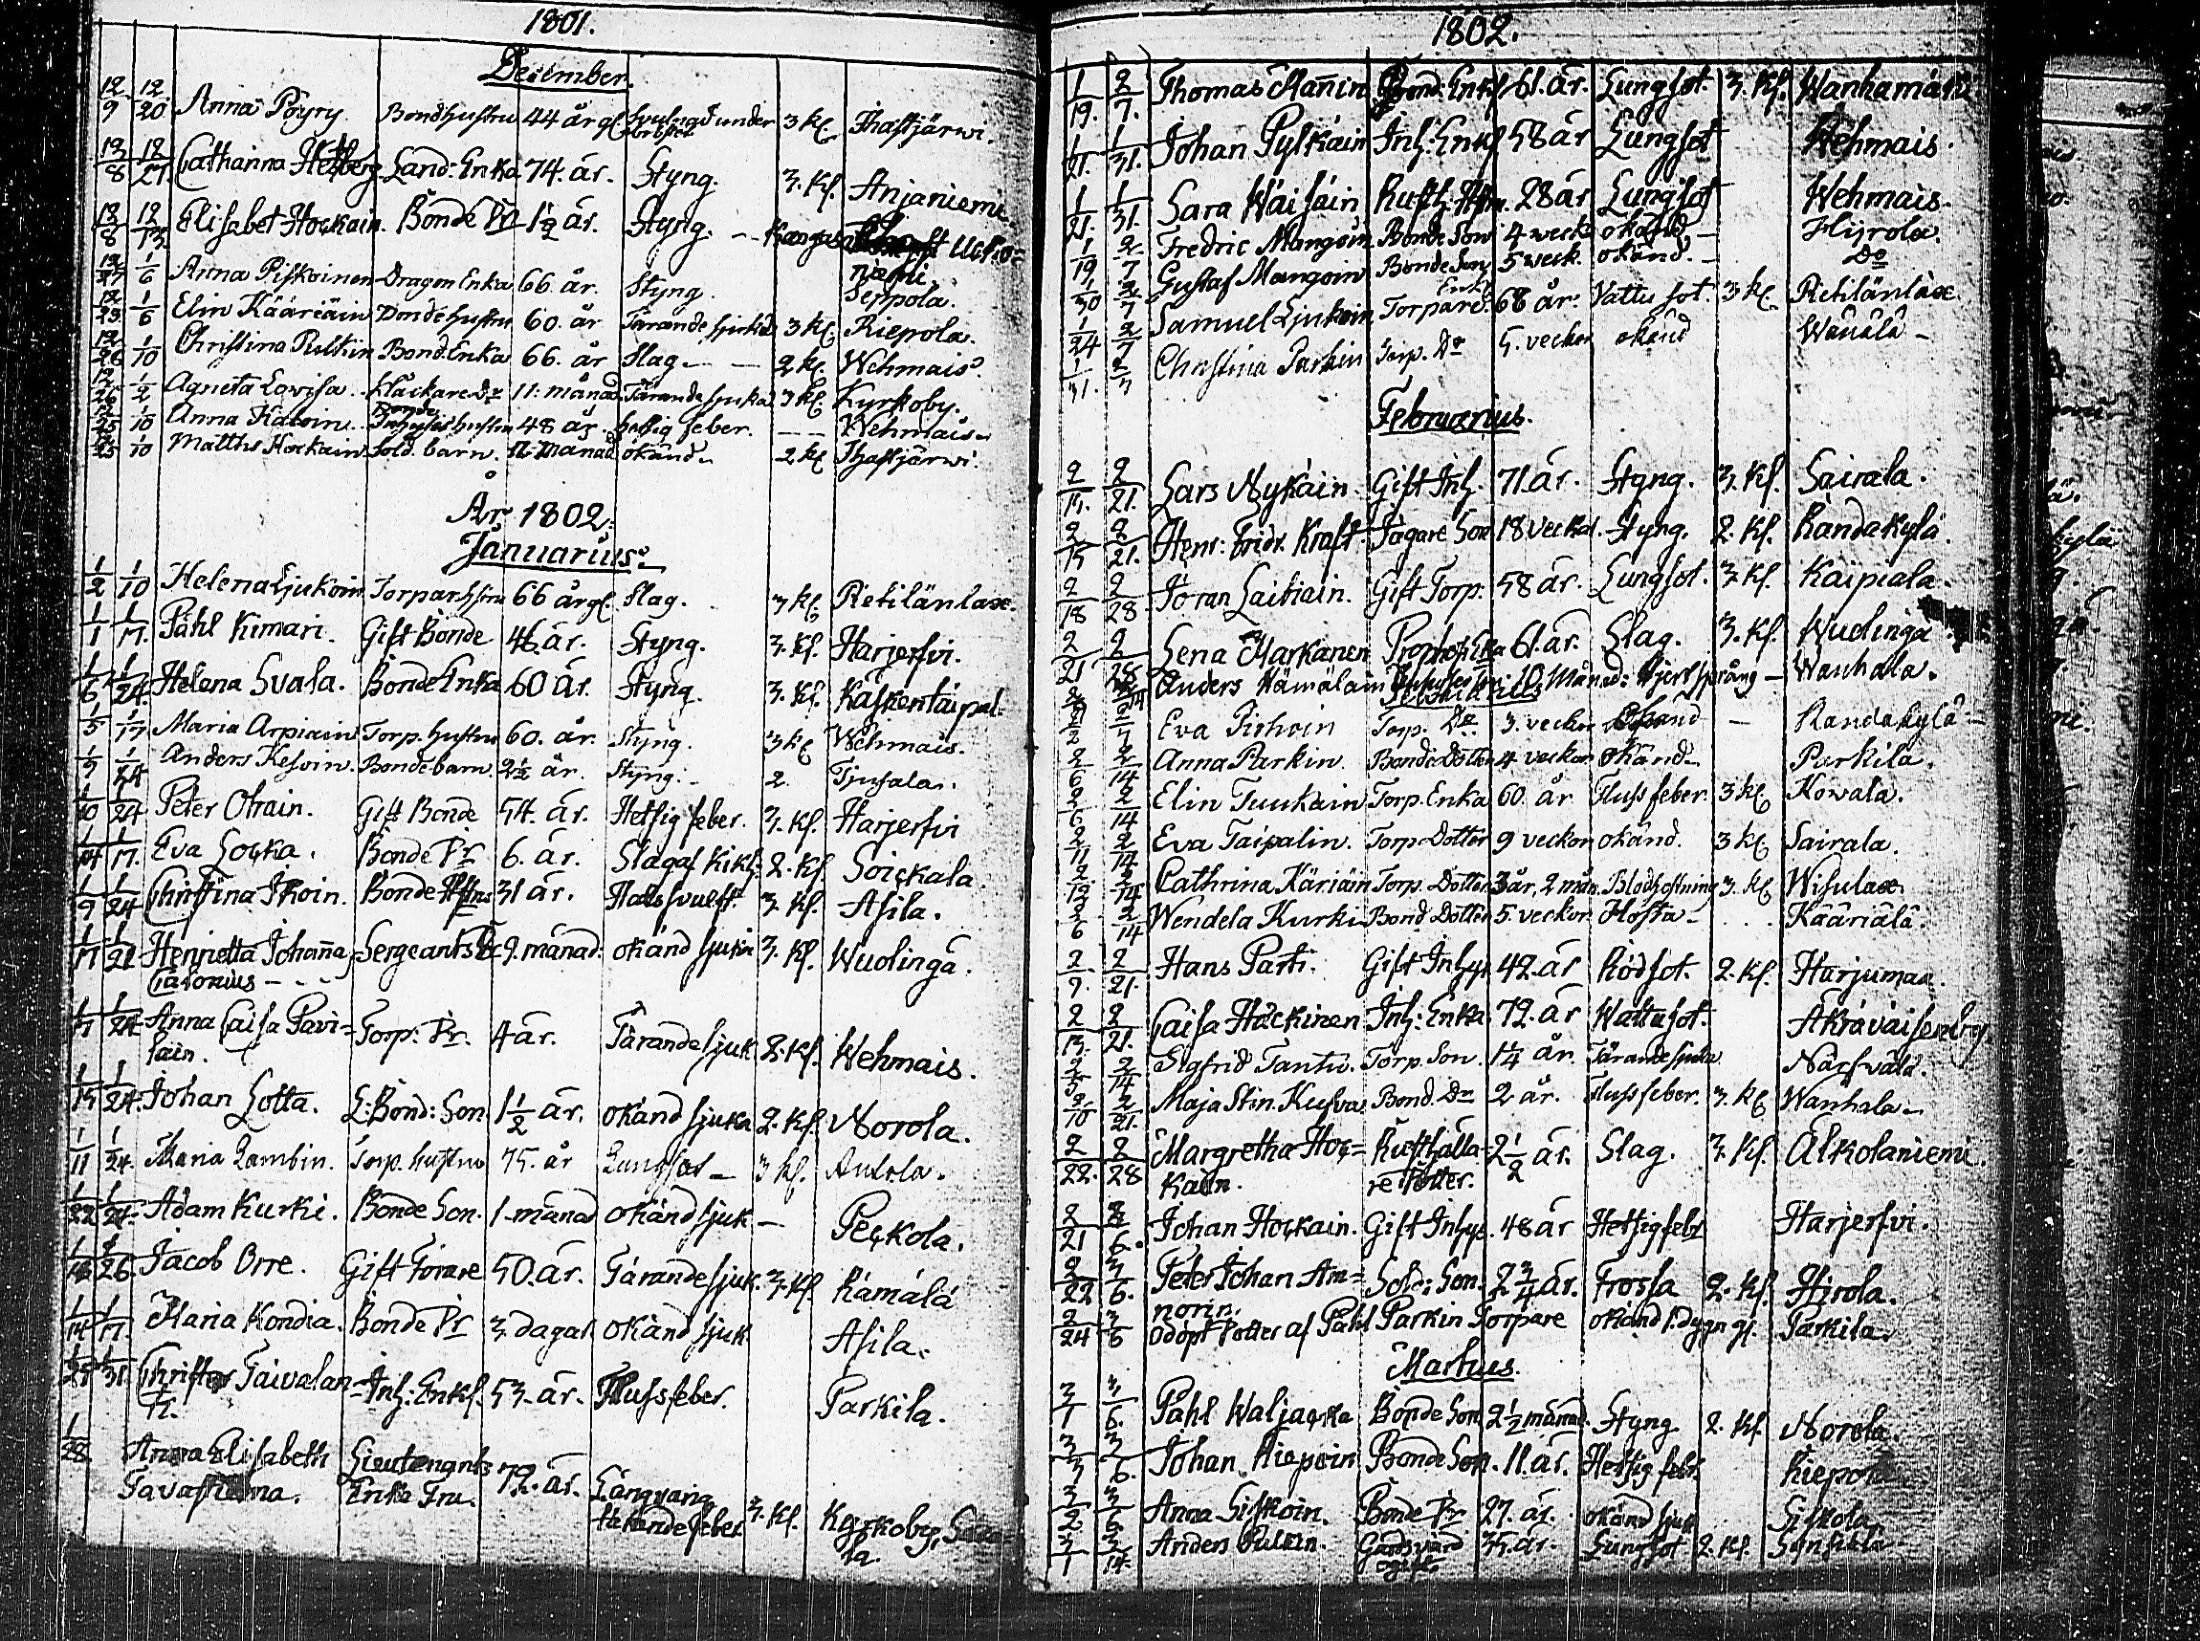 1801.
December.
12/9 12/20 Anna Pöyry. Bondhustru 44 år gl. under 3 kl. Thastjärwi.
12/8 12/27 Catharina Land: Enka 74. år. Styng. 3. Kl. Anjaniemi
12/8 12/13 Elisabet Hoçkain. Bonde Dr 1½ år. Styng. --
niemi
12/27 1/6 Anna Piskoinen Dragon Enka 66 år. Styng. Seppola.
12/23 1/6 Elin Kääriäin Bondehustru 60. år Tärande sjukd 3 kl. Riepola.
12/26 1/10 Christina Pulkin Bond. Enka 66. år Slag - - 2 kl. Wehmais.
12/26 1/2 Agneta Lovisa. Klåckare Dr 11. månad Tärande sjuka 3 kl. Kyrkoby.
12/25 1/10 Anna Katoin. hustru 48 år. hettig feber. -- Wehmais.
12/25 1/10 Matths Hockain Sold. barn. månad okänd. 2 kl Thastjärwi.
År 1802.
Januarius.
1/2 1/10 Helena Ljukoin Torparhstru 66 år gl. Slag. 3 kl. Retilänlax.
1/1 1/17. Påhl Kimari. Gift Bonde 46. år. Styng. 3. Kl. Harjersvi.
1/6 1/24. Helena Svala. Bonde Enka 60 år. Styng. 3. Kl. Kaskentaipal.
1/5 1/17 Maria Arpiain Torp. hustru 60. år. Styng. 3 kl Wehmais.
1/9 1/24 Anders Kesoin. Bonde barn 2½ år. Styng. - 2. Tjusala.
1/10 1/24 Peter Otrain. Gift Bonde 54. år. Hetsig feber. 3. Kl. Harjersvi
1/14 1/17. Eva Loçka. Bonde Dr 6. år. Slag af Kikh: 2. Kl Soiçkala
1/9 1/24 Christina Ikoin. Bonde Hstru 31 år. Halssvulst. 3. Kl. Asila.
1/17 1/21 Henrietta Johanna Sergeants Dr 9. månad: okänd sjuka 3. Kl. Wuolinga.
Calonius - - -
1/7 1/24 Anna Caisa Pavi= Torp: Dr. 4 år. Tärande sjuk 2. Kl. Wehmais.
lain.
1/15 1/24. Johan Lotta. L: Bond: Son. 1½ år. okänd sjuka 2. Kl. Norola.
1/11 1/24. Maria Lambin. Torp. hustru 75. år Lungsot - 3 kl. Antola.
1/22 1/24. Adam Kurki. Bonde Son. 1. månad okänd sjuk - Peçkola.
1/18 1/26. Jacob Orre. Gift Förare 50. år. Tärande sjuk. 3. Kl Kämälä
1/14 1/17. Maria Kondia. Bonde Dr 3. dagar okänd sjuk. Asila.
1/25 1/31. Christer Taivalan- Inh: Enkl. 53. år. Flussfeber. Parkila.
1/28 Anna Elisabeth Lieutenants 72. år. Långvarig
Tavastierna. Enka Fru. feber 3. Kl. Kyrkoby,
la.
1802.
1/19. 2/7. Thomas Manin Bond: Enkl 61. år. Lungsot. 3. Kl. Wanhamäki
1/21. 1/31. Johan Pylkäin Inh: Enkl 58 år Lungsot Wehmais.
1/21. 1/31. Sara Wäisäin Rusth: Hstru. 28 år Lungsot Wehmais.
1/19 2/7 Fredric Mangoin Bonde Son 4 veck okänd - Hijrola.
1/30 2/7 Gustaf Mangoin Bonde Son 5 veck. okänd. - Do
1/24 2/7 Samuel Ljukoin Torpare Enkl 68 år. Vattu sot. 3 kl. Retilänlax.
1/31. 2/7 Christina Parkin Torp. Dr 5. veckor okänd Wäuälä -
Februarius.
2/15. 2/21. Lars Nykäin. Gift Inh. 71. år. Styng. 3. Kl. Sairala.
2/15 2/21. Henr: Fridr. Kraft Fägare Son 18 veckor. Styng. 2. Kl. Randakylä.
2/18 2/28. Jöran Laitiain. Gift Torp. 58 år. Lungsot. 3. Kl. Kaipiala.
2/21 2/28 Lena Markanen Enka 61. år. Slag. 3. Kl. Wuolinga.
Anders Hämäläin 10 Månad: Hjertsprång - Wanhala.
2/2 2/7 Eva Pirhoin Torp. Dr. 3. veckor okänd - Randakylä -
2/6 2/14 Anna Parkin. Bonde Dotter 4 veckor okänd - Parkila.
2/6 2/14 Elin Tuukain Torp. Enka 60. år Fluss feber. 3 kl. Kowala.
2/11 2/14 Eva Taipalin. Torp. Dotter 9 veckor okänd. 3 kl Sairala.
2/12 2/14 Cathrina Käriäin Torp. Dotter 3 år, 2 mån. Blodhostning 3. kl Wisulax.
2/6 2/14 Wendela Kurki Bond. Dotter 5. veckor. Hosta - Kääriälä.
2/9. 2/21. Hans Parti. Gift Inhys 42. år Rödsot. 2. Kl. Harjumaa.
2/13. 2/21. Caisa Häckinen Inh: Enka 72. år Wattusot.
2/5 2/14 Sigfrid Tantu. Torp. Son. 1¼ år. Tärande sjuka Närfwälä.
2/10 2/21. Maja Stin. Kusva Bond. Dr 2 år. Flussfeber. 3. kl Wanhala.
2/22. 2/28 Margretha Hoç= Rusthålla 2½ år. Slag. 3. Kl. Alkolaniemi.
kain. re Dotter.
2/21 3/6. Johan Hoçkain. Gift Inhys. 48 år Hetsig febr Harjersvi.
2/22 3/6. Peter Johan Am= Sold: Son. 2¾ år. Frossa 2. Kl. Hirola.
norin.
2/24 3/6 Odöpt Dotter af Påhl Parkin Torpare okänd 1. dygn gl. Parkila.
Martius.
3/1 3/6. Påhl Waljaçka Bonde Son 2½ månad. Styng 2. Kl. Norola.
3/3 3/6. Johan Riepoin Bonde Son. 11. år. Hetsig febr.
3/2. 3/6 Anna Siskoin. Bonde Dr 27. år. okänd sjuk Siskola.
3/1 3/14. Anders Pulkin. 35. år. Lungsot 2. Kl.
ogift.